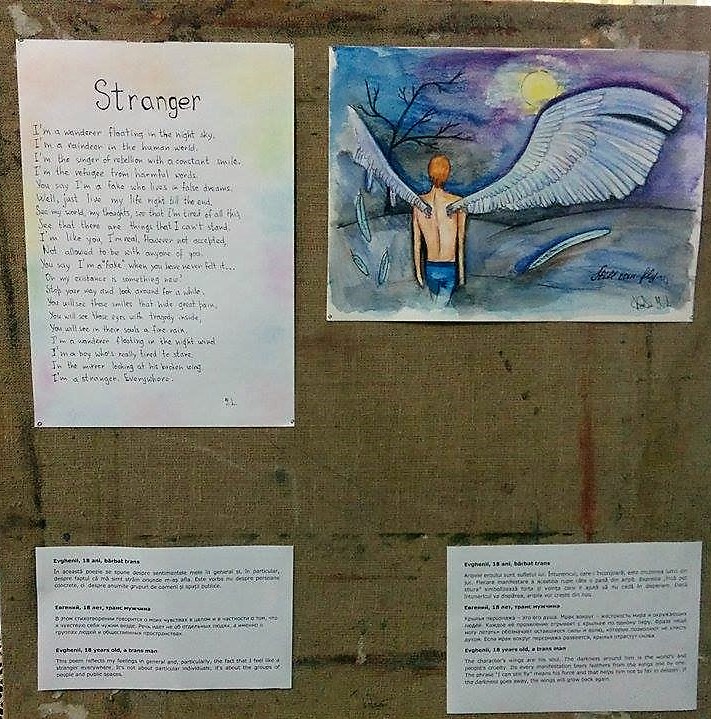 Stranger
I'm a wanderer floating in the night sky.
I'm a raindror in the human world.
I'm the singer of rebellion with a constant smile.
I'm the refugee from harmful words.
You say I'm a fake who lives in false dreams.
Well, just live my life night till the end,
See my world, my thoughts, see that I'm tired of all this,
See that there are things that I can't stand.
I'm like you, I'm real, However not accepted,
Not allowed to be with anyone of you.
You say I'm a "fake" when you have never felt it...
my existance is something new!
Stop your way and look around for a while,
You will see those smiles that hide great pain,
You will see those eyes with tragedy inside,
You will see in their souls a fire rain.
I'm a wanderer floating in the night wind
I'm a boy who's really tired to stare
In the mirror looking at his broken wing.
I'm a stranger. Everywhere.
Still can fly...
Evghenii, 18 ani, bărbat trans
În această poezie se spune despre sentimentele mele în general și, în particular,
despre faptul că mă simt străin oriunde m-aș afla. Este vorba nu despre persoane
concrete, ci despre anumite grupuri de oameni și spații publice.
Евгений, 18 лет, транс мужчина
В этом стихотворении говорится о моих чувствах в целом и в частности о том, что
я чувствую себя чужим везде. Речь идет не об отдельных людях, а именно о
группах людей и общественных пространствах.
Evghenii, 18 years old, a trans man
This poem reflects my feelings in general and, particularly, the fact that I feel like a
stranger everywhere. It's not about particular individuals; it's about the groups of
people and public spaces.
Evghenii, 18 ani, bărbat trans
Aripile eroului sunt sufletul lui. Întunericul, care-l înconjoară, este cruzimea lumii și a
oamenilor. Fiecare manifestare a acesteia rupe câte o pană din aripă. Expresia „Încă pot
zbura" simbolizează forța și voința care îl ajută să nu cadă în disperare. Dacă
întunericul va dispărea, aripile vor crește din nou.
Евгений, 18 лет, транс мужчина
Крылья персонажа – это его душа. Мрак вокруг – жестокость мира и окружающих
людей. Каждое её проявление отрывает с крыльев по одному перу. Фраза «Ещё
могу летать» обозначает оставшиеся силы и волю, которые позволяют не впасть
духом. Если мрак вокруг персонажа развеется, крылья отрастут снова.
Evghenii, 18 years old, a trans man
The character's wings are his soul. The darkness around him is the world's and
people's cruelty. Its every manifestation tears feathers from the wings one by one.
The phrase "I can still fly" means his force and that helps him not to fall in despair. If
the darkness goes away, the wings will grow back again.